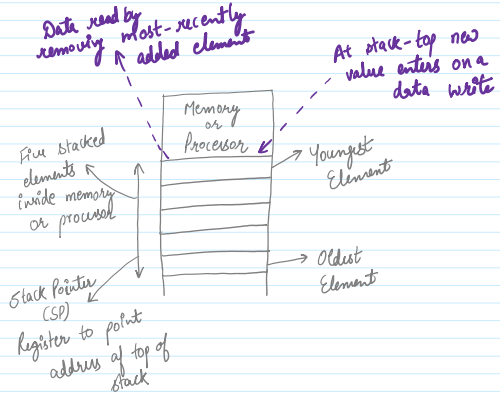 Data read by
removing most-recently
added element
At stack-top new
value enters on a
data write
Memory
or
Processor
Five stacked
elements
inside memory
or processor
Youngest
Element
Oldest
Element
Stack Pointer
(SP)
Register to point
address of top of
stack